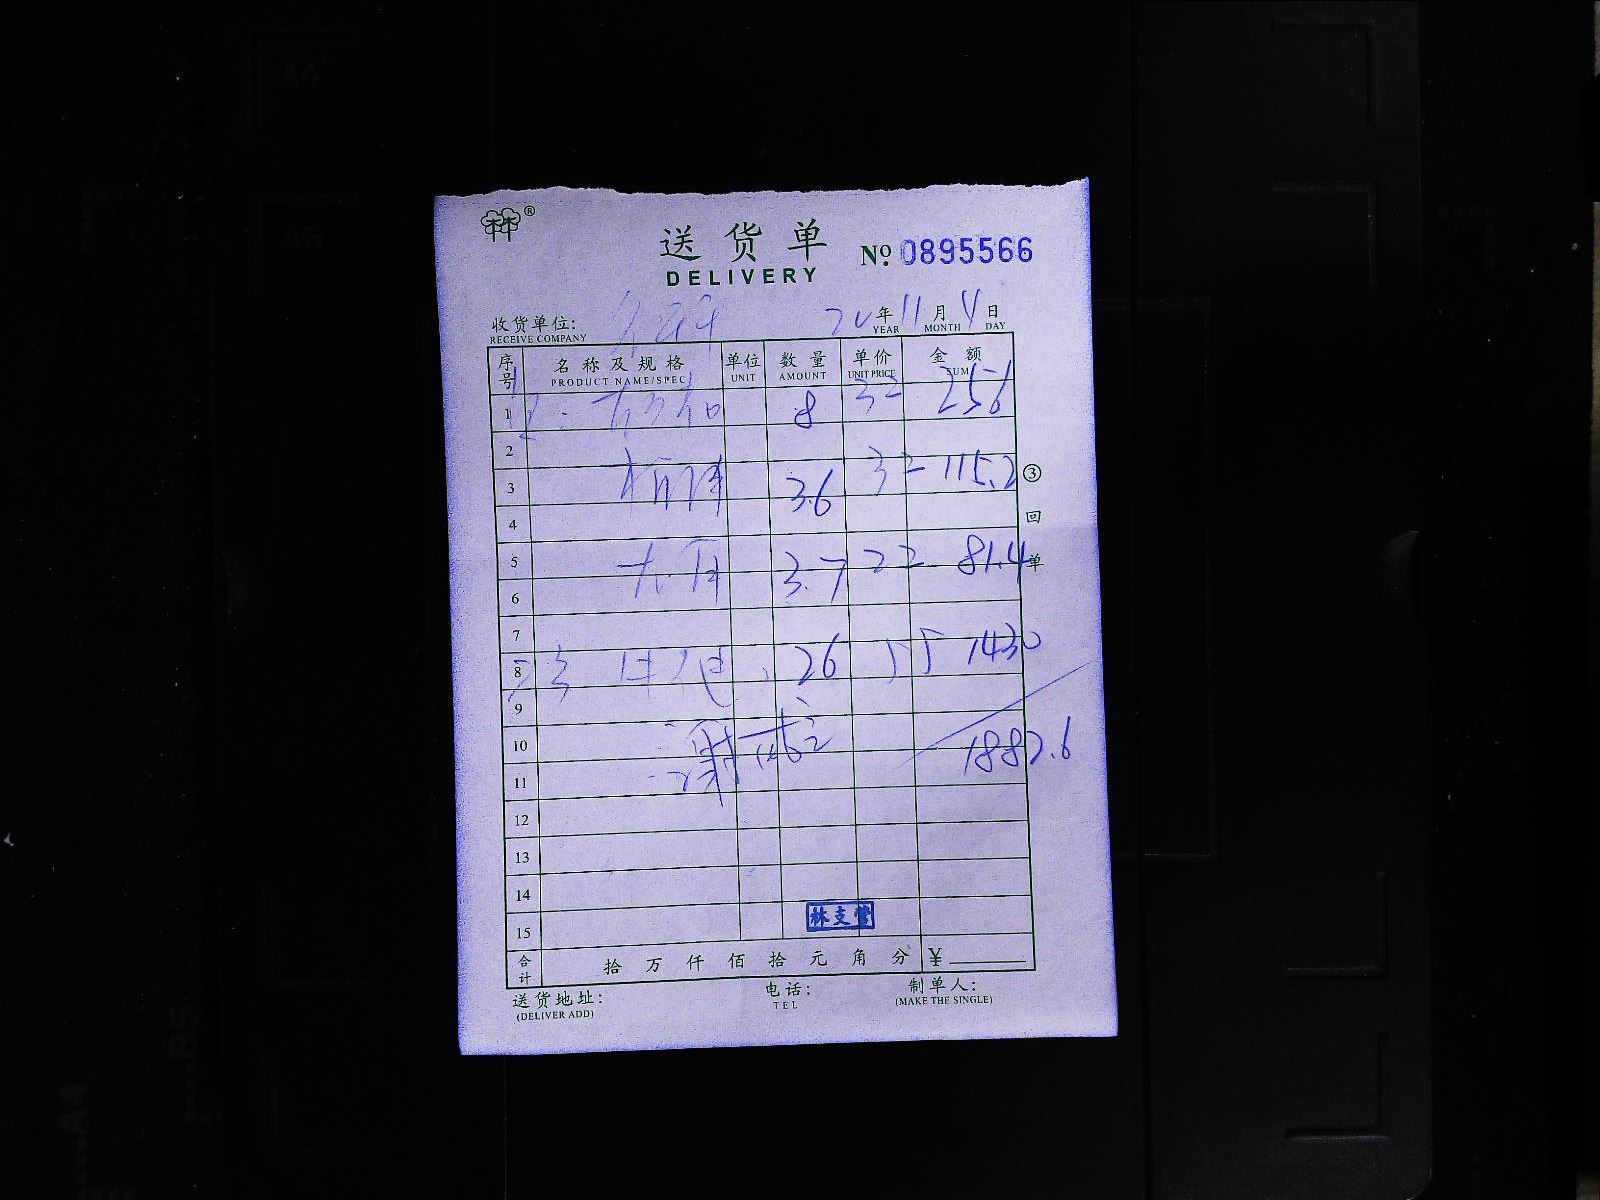 送货单
DELIVERY
Nº 0895566
收货单位:
RECEIVE COMPANY
20年11月4日
YEAR MONTH DAY
序号 名称及规格 单位 数量 单价 金额
PRODUCT NAME/SPEC UNIT AMOUNT UNIT PRICE SUM
1 8 32 256
2
3 3.6 32 115.2
4
5 3.7 22 81.4
6
7
8 26 55 1430
9
10
1882.6
11
12
13
14
林支营
15
合计 拾 万 仟 佰 拾 元 角 分 ¥
送货地址:
(DELIVER ADD)
电话:
TEL
制单人:
(MAKE THE SINGLE)
③回单
A4
A5
B5
A4